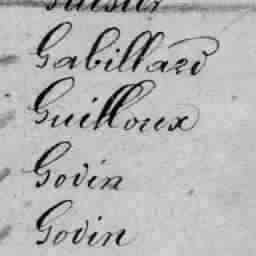 Gabillard
Guilloux
Godin
Godin